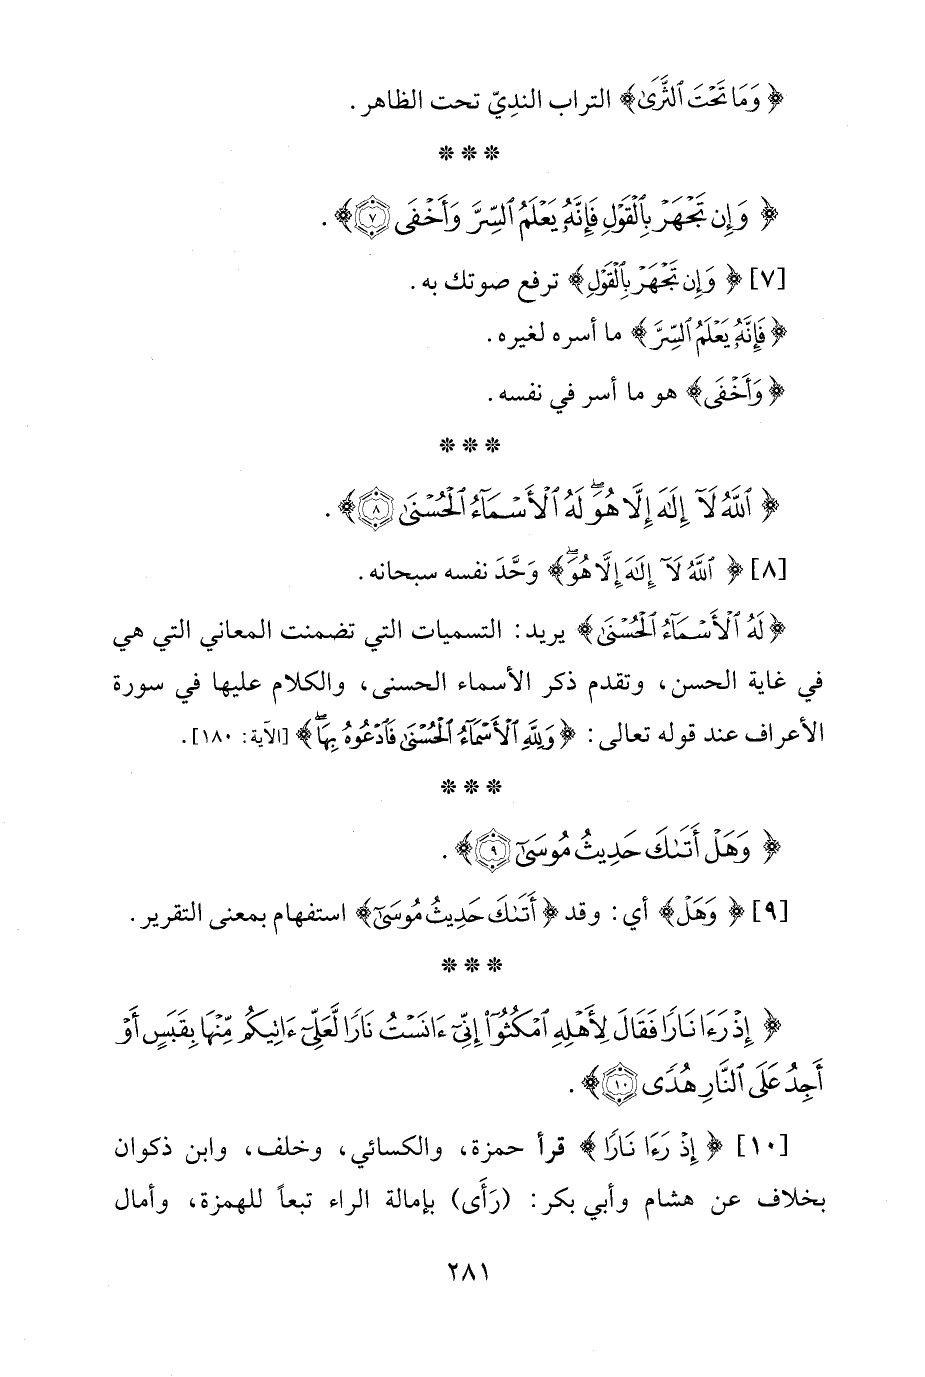 ﴿ وَمَا تَحْتَ ٱلثَّرَىٰ﴾ التراب النديّ تحت الظاهر .
* * *
﴿ وَإِن تَجْهَرْ بِٱلْقَوْلِ فَإِنَّهُۥ يَعْلَمُ ٱلسِّرَّ وَأَخْفَى ٧﴾ .
[٧] ﴿ وَإِن تَجْهَرْ بِٱلْقَوْلِ﴾ ترفع صوتك به .
﴿فَإِنَّهُۥ يَعْلَمُ ٱلسِّرَّ﴾ ما أسره لغيره .
﴿وَأَخْفَى﴾ هو ما أسر في نفسه .
* * *
﴿ ٱللَّهُ لَآ إِلَٰهَ إِلَّا هُوَۖ لَهُ ٱلْأَسْمَآءُ ٱلْحُسْنَىٰ ٨﴾ .
[٨] ﴿ ٱللَّهُ لَآ إِلَٰهَ إِلَّا هُوَۖ﴾ وَحَّدَ نفسه سبحانه .
﴿لَهُ ٱلْأَسْمَآءُ ٱلْحُسْنَىٰ﴾ يريد : التسميات التي تضمنت المعاني التي هي
في غاية الحسن ، وتقدم ذكر الأسماء الحسنى ، والكلام عليها في سورة
الأعراف عند قوله تعالى : ﴿وَلِلَّهِ ٱلْأَسْمَآءُ ٱلْحُسْنَىٰ فَٱدْعُوهُ بِهَاۖ﴾ [الآية : ١٨٠] .
* * *
﴿ وَهَلْ أَتَىٰكَ حَدِيثُ مُوسَىٰٓ ٩﴾ .
[٩] ﴿ وَهَلْ﴾ أي : وقد ﴿أَتَىٰكَ حَدِيثُ مُوسَىٰٓ﴾ استفهام بمعنى التقرير .
* * *
﴿ إِذْ رَءَا نَارًا فَقَالَ لِأَهْلِهِ ٱمْكُثُوٓا۟ إِنِّىٓ ءَانَسْتُ نَارًا لَّعَلِّىٓ ءَاتِيكُم مِّنْهَا بِقَبَسٍ أَوْ
أَجِدُ عَلَى ٱلنَّارِ هُدًى ١٠﴾ .
[١٠] ﴿ إِذْ رَءَا نَارًا ﴾ قرأ حمزة ، والكسائي ، وخلف ، وابن ذكوان
بخلاف عن هشام وأبي بكر : (رَأَى) بإمالة الراء تبعاً للهمزة ، وأمال
٢٨١